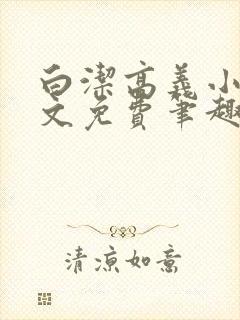 白潔高義小
文免費筆趣
清涼如意